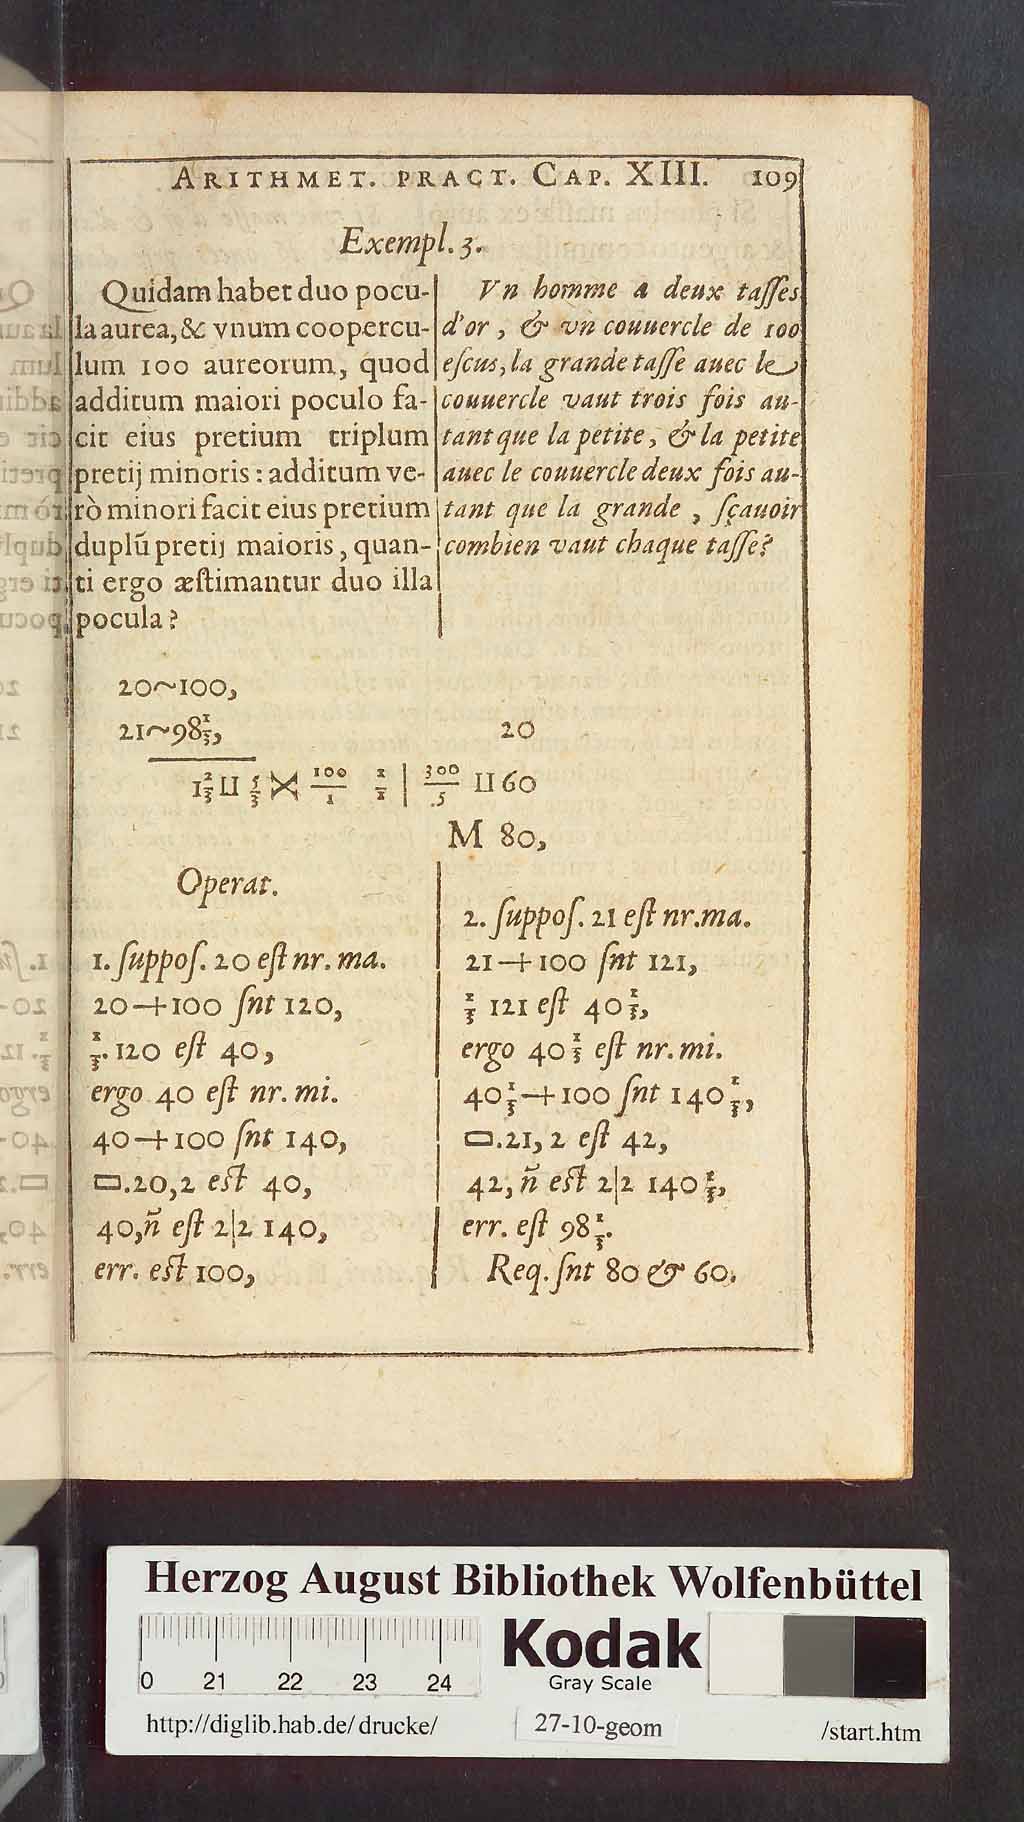 ARITHMET. PRACT. CAP. XIII. 109
Exempl. 3.
Quidam habet duo pocu-
la aurea, & vnum coopercu-
lum 100 aureorum, quod
additum maiori poculo fa-
cit eius pretium triplum
pretij minoris : additum ve-
rò minori facit eius pretium
duplũ pretij maioris, quan-
ti ergo æſtimantur duo illa
pocula ?
Vn homme a deux taſſes
d'or, & vn couuercle de 100
eſcus, la grande taſſe auec le
couuercle vaut trois fois au-
tant que la petite, & la petite
auec le couuercle deux fois au-
tant que la grande, ſçauoir
combien vaut chaque taſſe?
20~100,
21~98 1/3, 20
1 2/3 ⊔ 5/3 ⋊⋉ 100/1 1/1 | 300/5 ⊔ 60
M 80,
Operat.
1. ſuppoſ. 20 eſt nr. ma.
20+100 ſnt 120,
1/3. 120 eſt 40,
ergo 40 eſt nr. mi.
40+100 ſnt 140,
▭.20,2 eſt 40,
40,ñ eſt 2|2 140,
err. eſt 100,
2. ſuppoſ. 21 eſt nr. ma.
21+100 ſnt 121,
1/3 121 eſt 40 1/3,
ergo 40 1/3 eſt nr. mi.
40 1/3+100 ſnt 140 1/3,
▭.21,2 eſt 42,
42,ñ eſt 2|2 140 1/3,
err. eſt 98 1/3.
Req. ſnt 80 & 60.
Herzog August Bibliothek Wolfenbüttel
0 21 22 23 24
Kodak
Gray Scale
http://diglib.hab.de/drucke/ 27-10-geom /start.htm